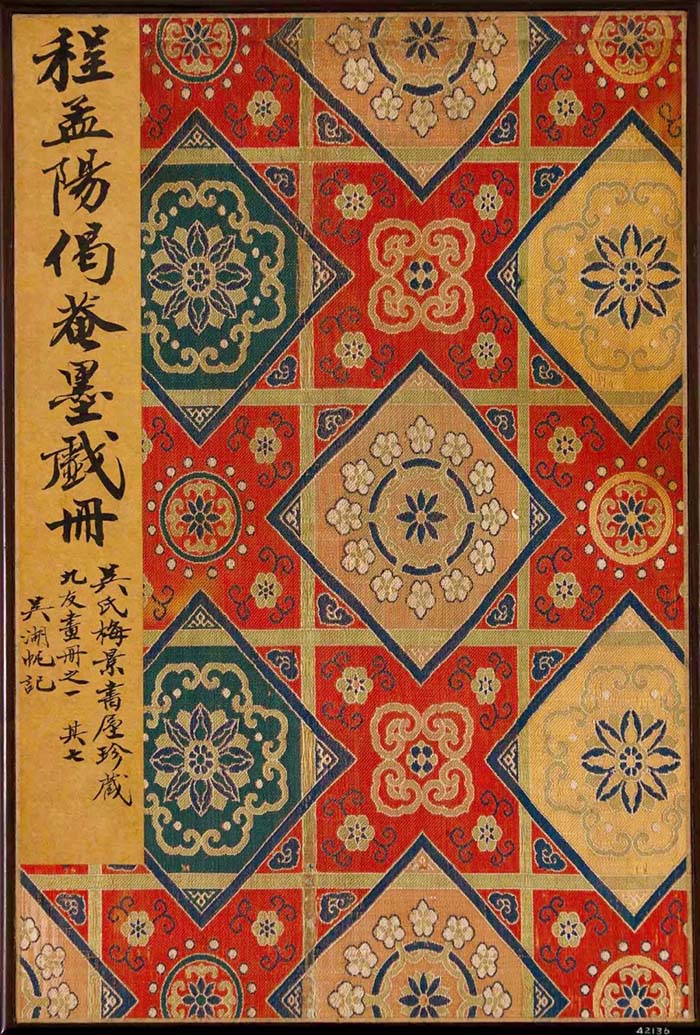 程孟陽偈菴墨戲冊
吳氏梅景書屋珍藏
九友畫冊之一 其七
吳湖帆記
42136